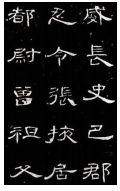 威長史巴郡
忍令張掖居
都尉曾祖父